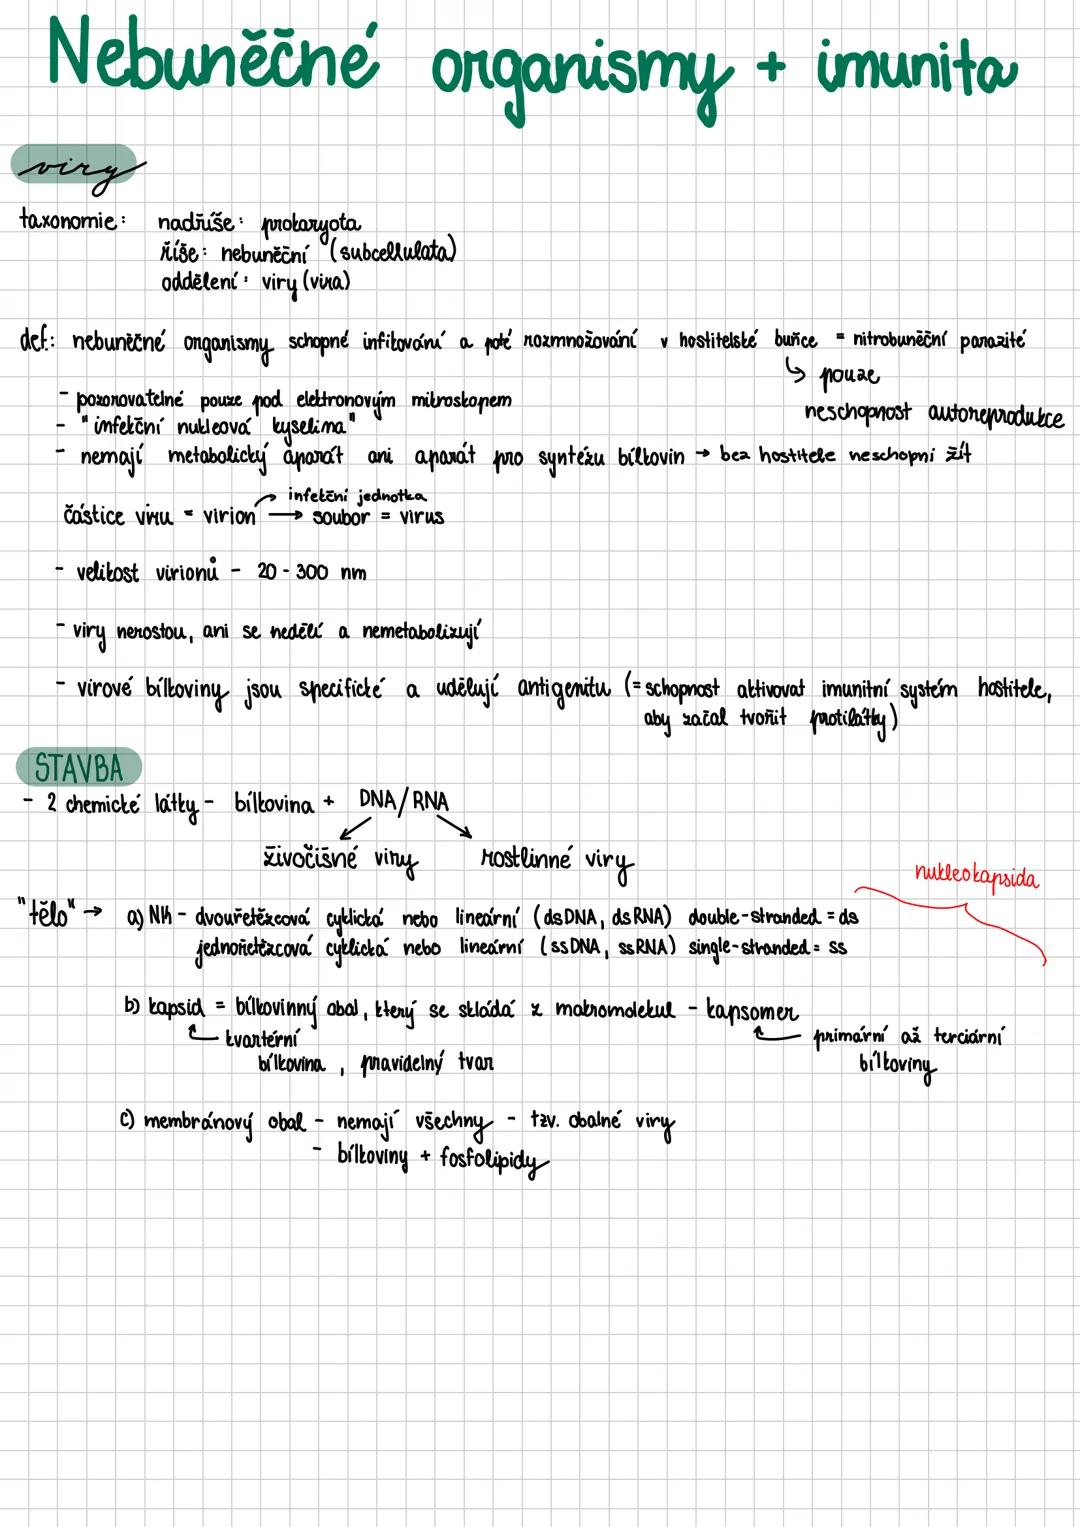 Nebuněčné organismy + imunita
viry
taxonomie: nadříše: prokaryota
říše: nebuněční (subcellulata)
oddělení: viry (vira)
def.: nebuněčné organismy schopné infikování a poté rozmnožování v hostitelské buňce = nitrobuněční parazité
↳ pouze
neschopnost autoreprodukce
- pozorovatelné pouze pod elektronovým mikroskopem
- "infekční nukleová kyselina"
- nemají metabolický aparát ani aparát pro syntézu bílkovin → bez hostitele neschopni žít
→ infekční jednotka
částice viru = virion → soubor = virus
- velikost virionů - 20 - 300 nm
- viry nerostou, ani se nedělí a nemetabolizují
- virové bílkoviny jsou specifické a udělují antigenitu (= schopnost aktivovat imunitní systém hostitele,
aby začal tvořit protilátky)
STAVBA
- 2 chemické látky - bílkovina + DNA/RNA
živočišné viry rostlinné viry
nukleokapsida
"tělo" → a) NK - dvouřetězcová cyklická nebo lineární (dsDNA, dsRNA) double-stranded = ds
jednořetězcová cyklická nebo lineární (ssDNA, ssRNA) single-stranded = ss
b) kapsid = bílkovinný obal, který se skládá z makromolekul - kapsomer
kvartérní
bílkovina, pravidelný tvar
primární až terciární
bílkoviny
c) membránový obal - nemají všechny - tzv. obalné viry
- bílkoviny + fosfolipidy